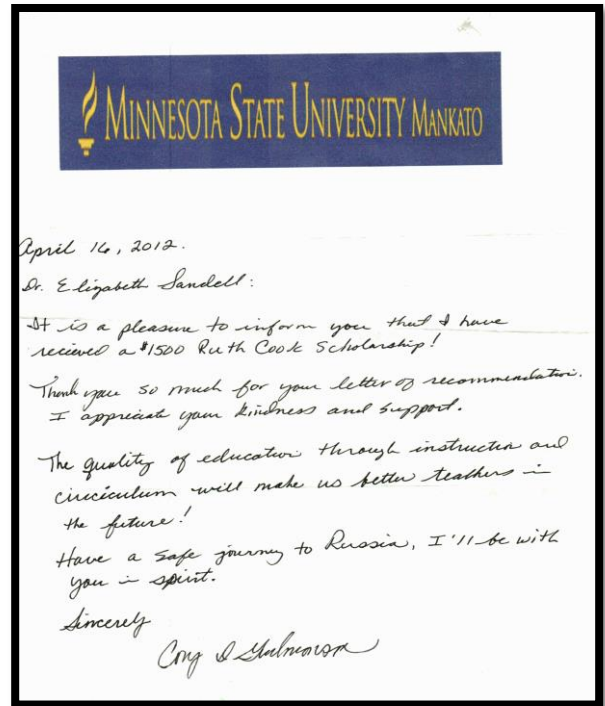 MINNESOTA STATE UNIVERSITY MANKATO
April 16, 2012.
Dr. Elizabeth Sandell:
It is a pleasure to inform you that I have
recieved a $1500 Ruth Cook Scholarship!
Thank you so much for your letter of recommendation.
I appreciate your kindness and support.
The quality of education through instruction and
ciriciculum will make us better teachers in
the future!
Have a safe journey to Russia, I'll be with
you in spirit.
Sincerely